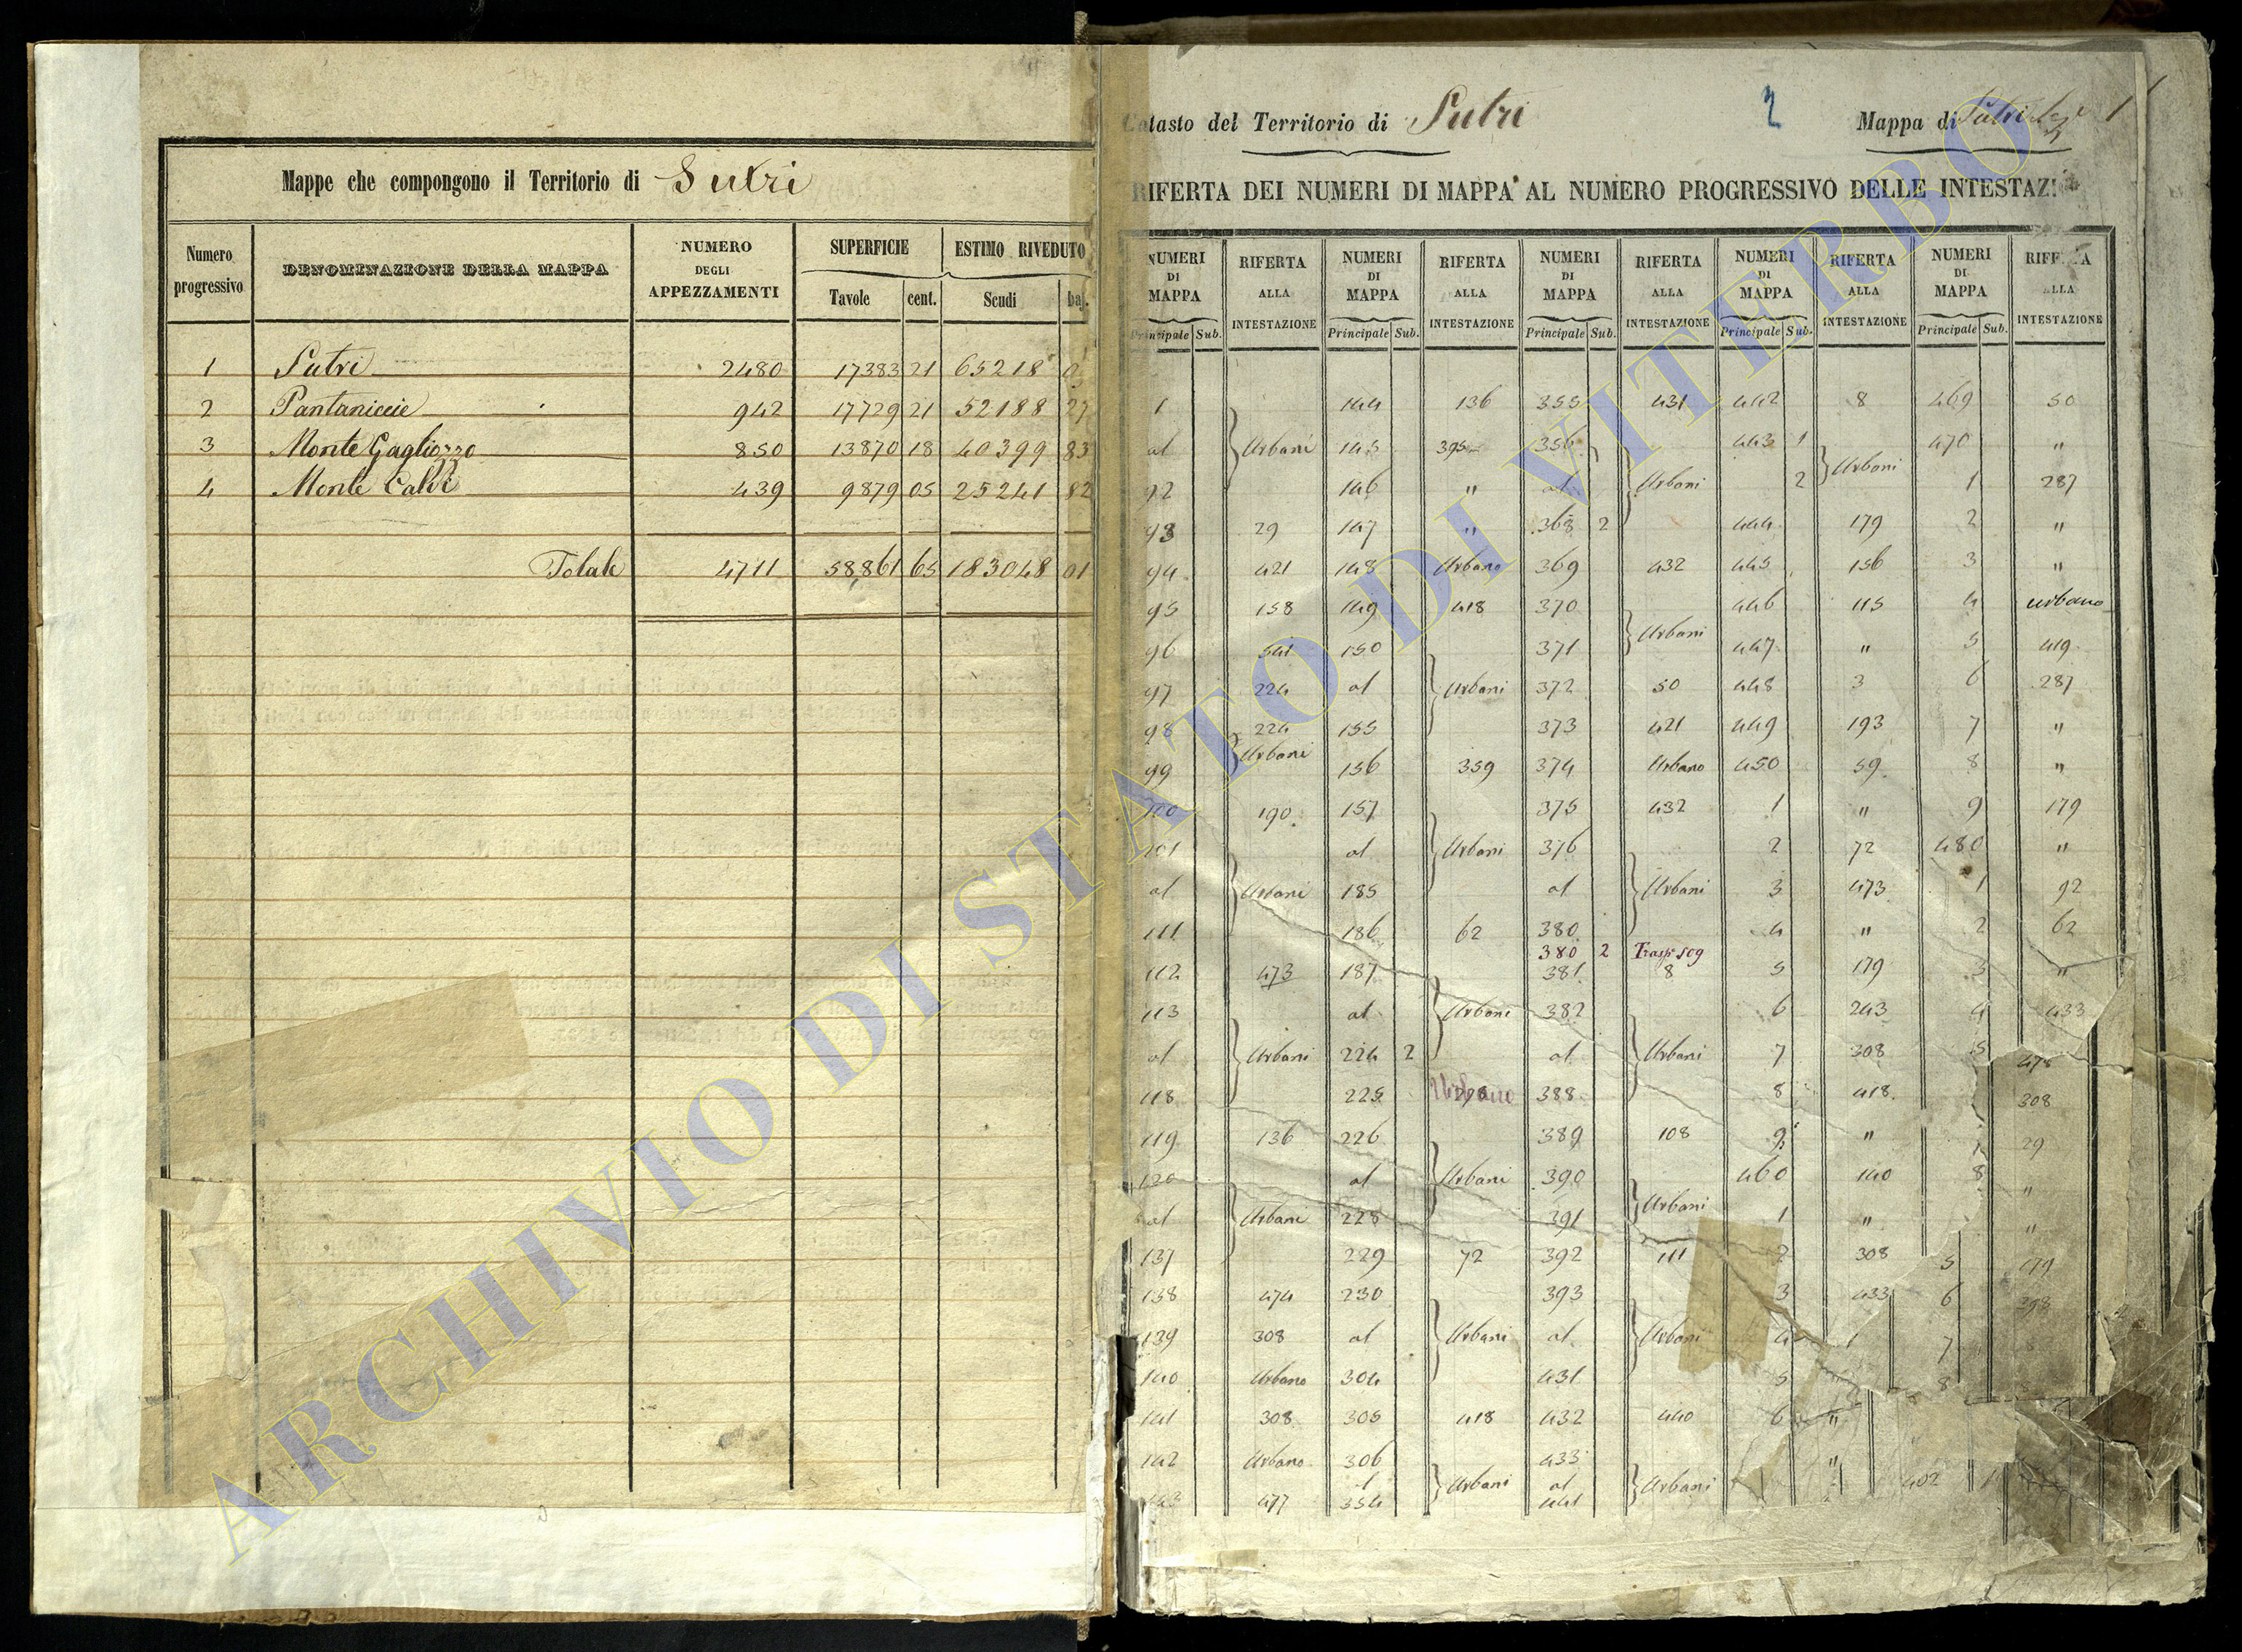 Mappe che compongono il Territorio di Sutri
Numero progressivo | DENOMINAZIONE DELLA MAPPA | NUMERO DEGLI APPEZZAMENTI | SUPERFICIE Tavole cent. | ESTIMO RIVEDUTO Scudi baj.
1 Sutri 2480 17383 21 65218
2 Pantaniccie 942 17729 21 52188 27
3 Monte Gagliozzo 850 13870 18 40399 83
4 Monte Calvi 439 9879 05 25241 82
Totale 4711 58,861 65 183048 01
Catasto del Territorio di Sutri 2 Mappa di Sutri 1
RIFERTA DEI NUMERI DI MAPPA AL NUMERO PROGRESSIVO DELLE INTESTAZI
NUMERI DI MAPPA Principale Sub. | RIFERTA ALLA INTESTAZIONE | NUMERI DI MAPPA Principale Sub. | RIFERTA ALLA INTESTAZIONE | NUMERI DI MAPPA Principale Sub. | RIFERTA ALLA INTESTAZIONE | NUMERI DI MAPPA Principale Sub. | RIFERTA ALLA INTESTAZIONE | NUMERI DI MAPPA Principale Sub. | RIFERTA ALLA INTESTAZIONE
1 144 136 355 431 442 8 469 50
al Urbani 145 395 356 443 1 470 "
92 146 " al Urbani 2 Urbani 1 287
93 29 147 " 368 2 444 179 2 "
94 421 148 Urbano 369 432 445 156 3 "
95 158 149 418 370 446 115 4 urbano
96 541 150 371 Urbani 447 " 5 419
97 224 al Urbani 372 50 448 3 6 287
98 224 155 373 421 449 193 7 "
99 Urbani 156 359 374 Urbano 450 59 8 "
100 190 157 375 432 1 " 9 179
101 al Urbani 376 2 72 480 "
al Urbani 185 al Urbani 3 473 1 92
111 186 62 380 4 " 2 62
380 2 Trasp 509
112 473 187 381 8 5 179 3 "
113 al Urbani 382 6 243 4 433
al Urbani 224 2 al Urbani 7 308 5 478
118 225 Urbano 388 8 418 308
119 136 226 389 108 9 " 29
120 al Urbani 390 460 140 8 "
al Urbani 228 391 Urbani 1 " "
137 229 72 392 111 2 308 5 179
138 474 230 393 3 433 6 398
139 308 al Urbani al Urbani 4 7
140 Urbano 304 431 5 8
141 308 305 418 432 440 6 "
142 Urbano 306 433 "
143 477 al 354 Urbani al 441 Urbani 402
ARCHIVIO DI STATO DI VITERBO